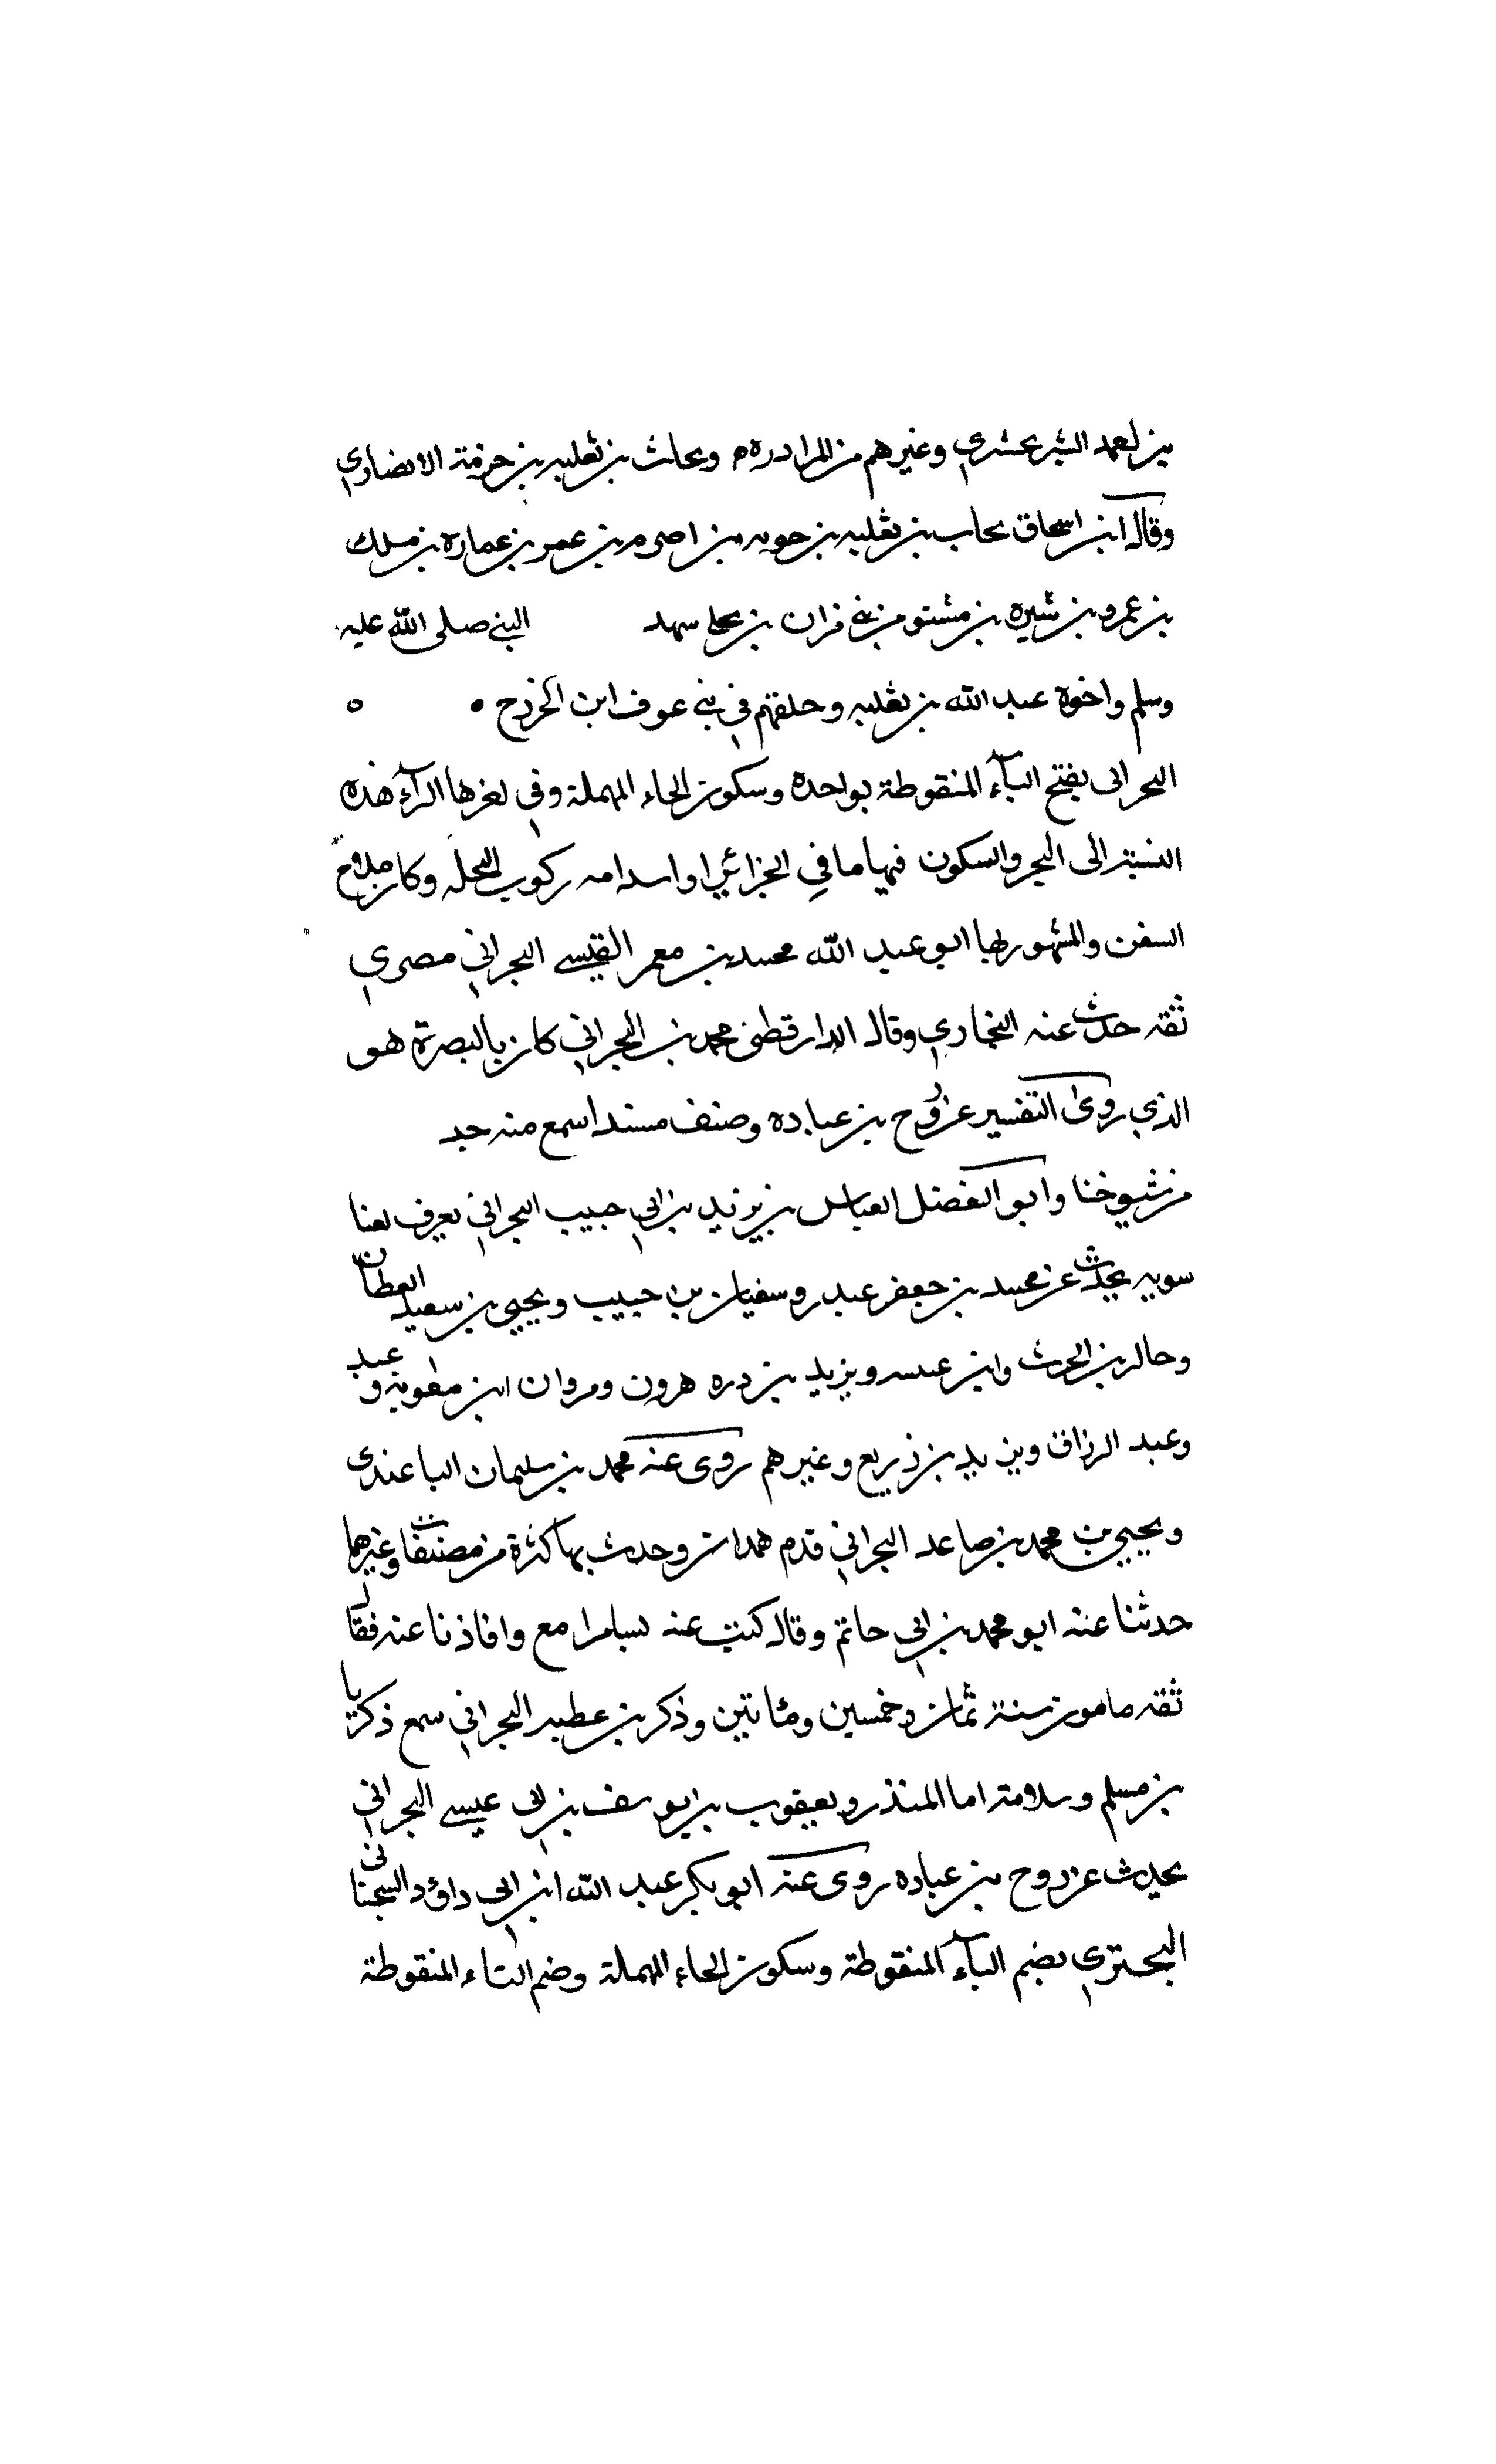 بن لعمد الشير عشري وغيرهم من المرادره ه وبحاث بن ثعلبه بن حزمة الانصاري
وقال ابن اسحاق بحاب بن ثعلبه بن حويه بن اصرم بن عمر بن عماره بن ملك
بن عمرو بن شيره بن مشتو من بني فران بن بحلي شهد النبي صلى الله عليه
وسلم واخوة عبد الله بن ثعلبه وحلفهم في بني عوف ابن الخزرج ه ه
البحرانى بفتح البآء المنقوطة بواحدة وسكون الحاء المهملة وفي اخرها الرآء هذه
النسبة الى البحر والسكون فيها ما في الجزائر او استدامه ركوب البحر له وكان ملاح
السفن والمشهور بها ابو عبد الله محمد بن معمر القيسي البحراني مصري
ثقه حدث عنه البخاري وقال الدارقطنى محمد بن البحراني كان بالبصرة هو
الذي روى التفسير عن روح بن عباده وصنف مسندا سمع منه حد
من شيوخنا وابو الفضل العباس بن يزيد بن ابي حبيب البحراني يعرف لعنا
سويه يحدث عن محمد بن جعفر عبدر وسفيان بن حبيب ويحيى بن سعيد القطان
وخالد بن الحرث وابن عيينه ويزيد بن دره هرون ومروان ابن معويه و عبد
وعبد الرزاق ويزيد بن ذريع وغيرهم روى عنه محمد بن سليمان الباغندى
ويحيى بن محمد بن صاعد البحراني قدم همدان وحدث بها كثرة من مصنفات وغيرها
حدثنا عنه ابو محمد بن ابي حاتم وقال كتبت عنه بسامرا مع وافاذنا عنه فقال
ثقه مامون سنة ثمان وخمسين ومئاتين وذكر بن عطيه البحراني سمع ذكريا
بن مسلم وسلامة اما المنذر ويعقوب بن يوسف بن ابى عيسى البحراني
يحدث عن روح بن عباده روى عنه ابو بكر عبد الله ابن ابي داؤد السجستاني
البحتري بضم البآء المنقوطة وسكون الحاء المهملة وضم التاء المنقوطة